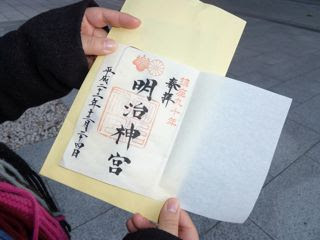 鎮座九十年
奉拝
明治神宮
平成二十二年十二月二十四日